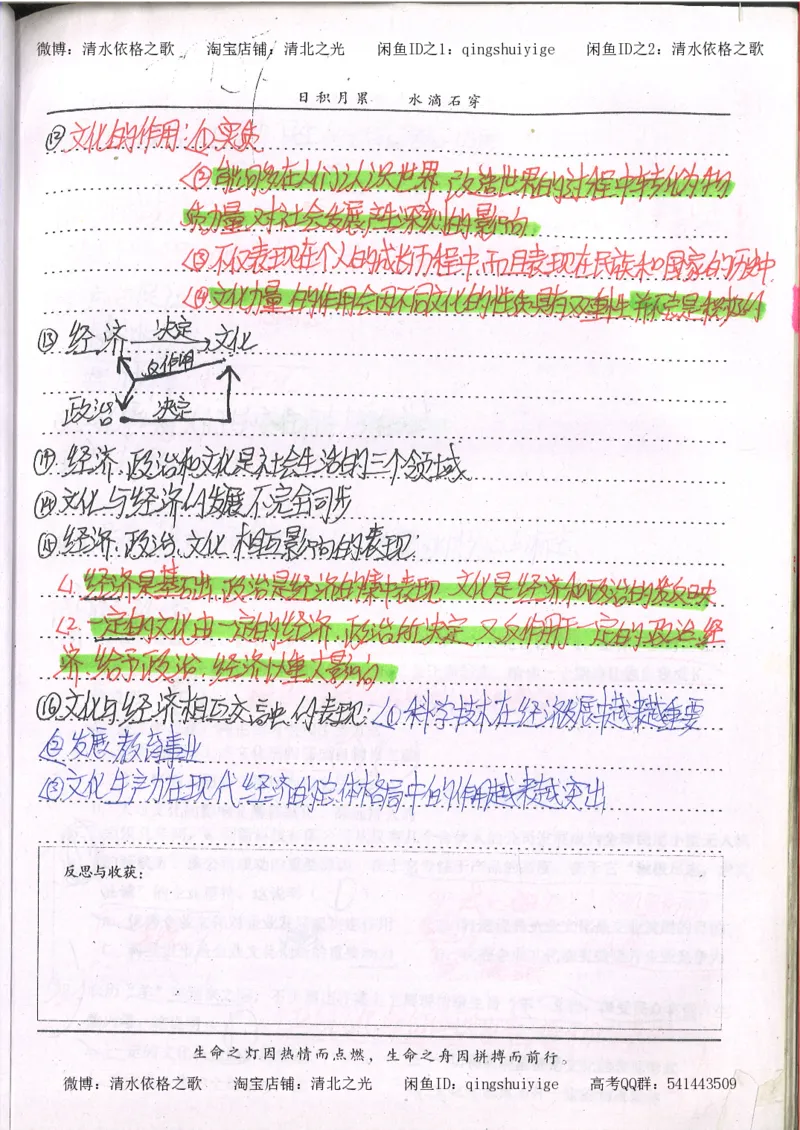 微博：清水依格之歌 淘宝店铺：清北之光 闲鱼ID之1：qingshuiyige 闲鱼ID之2：清水依格之歌
日积月累 水滴石穿
⑫文化的作用：①实质
②能够在人们认识世界，改造世界的过程中转化为物
质力量，对社会发展产生深刻的影响
③不仅表现在个人的成长历程中，而且表现在民族和国家的历史中
④文化力量的作用会因不同文化的性质具有双重性，并不定是积极的
⑬经济 决定 文化
反作用
政治 决定
经济、政治和文化是社会生活的三个领域
⑭文化与经济的发展不完全同步
⑮经济、政治、文化相互影响的表现：
1.经济是基础，政治是经济的集中表现，文化是经济和政治的反映
2.一定的文化由一定的经济、政治所决定，又反作用于一定的政治、经
济，给予政治、经济以重大影响
⑯文化与经济相互交融的表现：①科学技术在经济发展中越来越重要
②发展教育事业
③文化生产力在现代经济的总体格局中的作用越来越突出
反思与收获：
生命之灯因热情而点燃，生命之舟因拼搏而前行。
微博：清水依格之歌 淘宝店铺：清北之光 闲鱼ID：qingshuiyige 高考QQ群：541443509